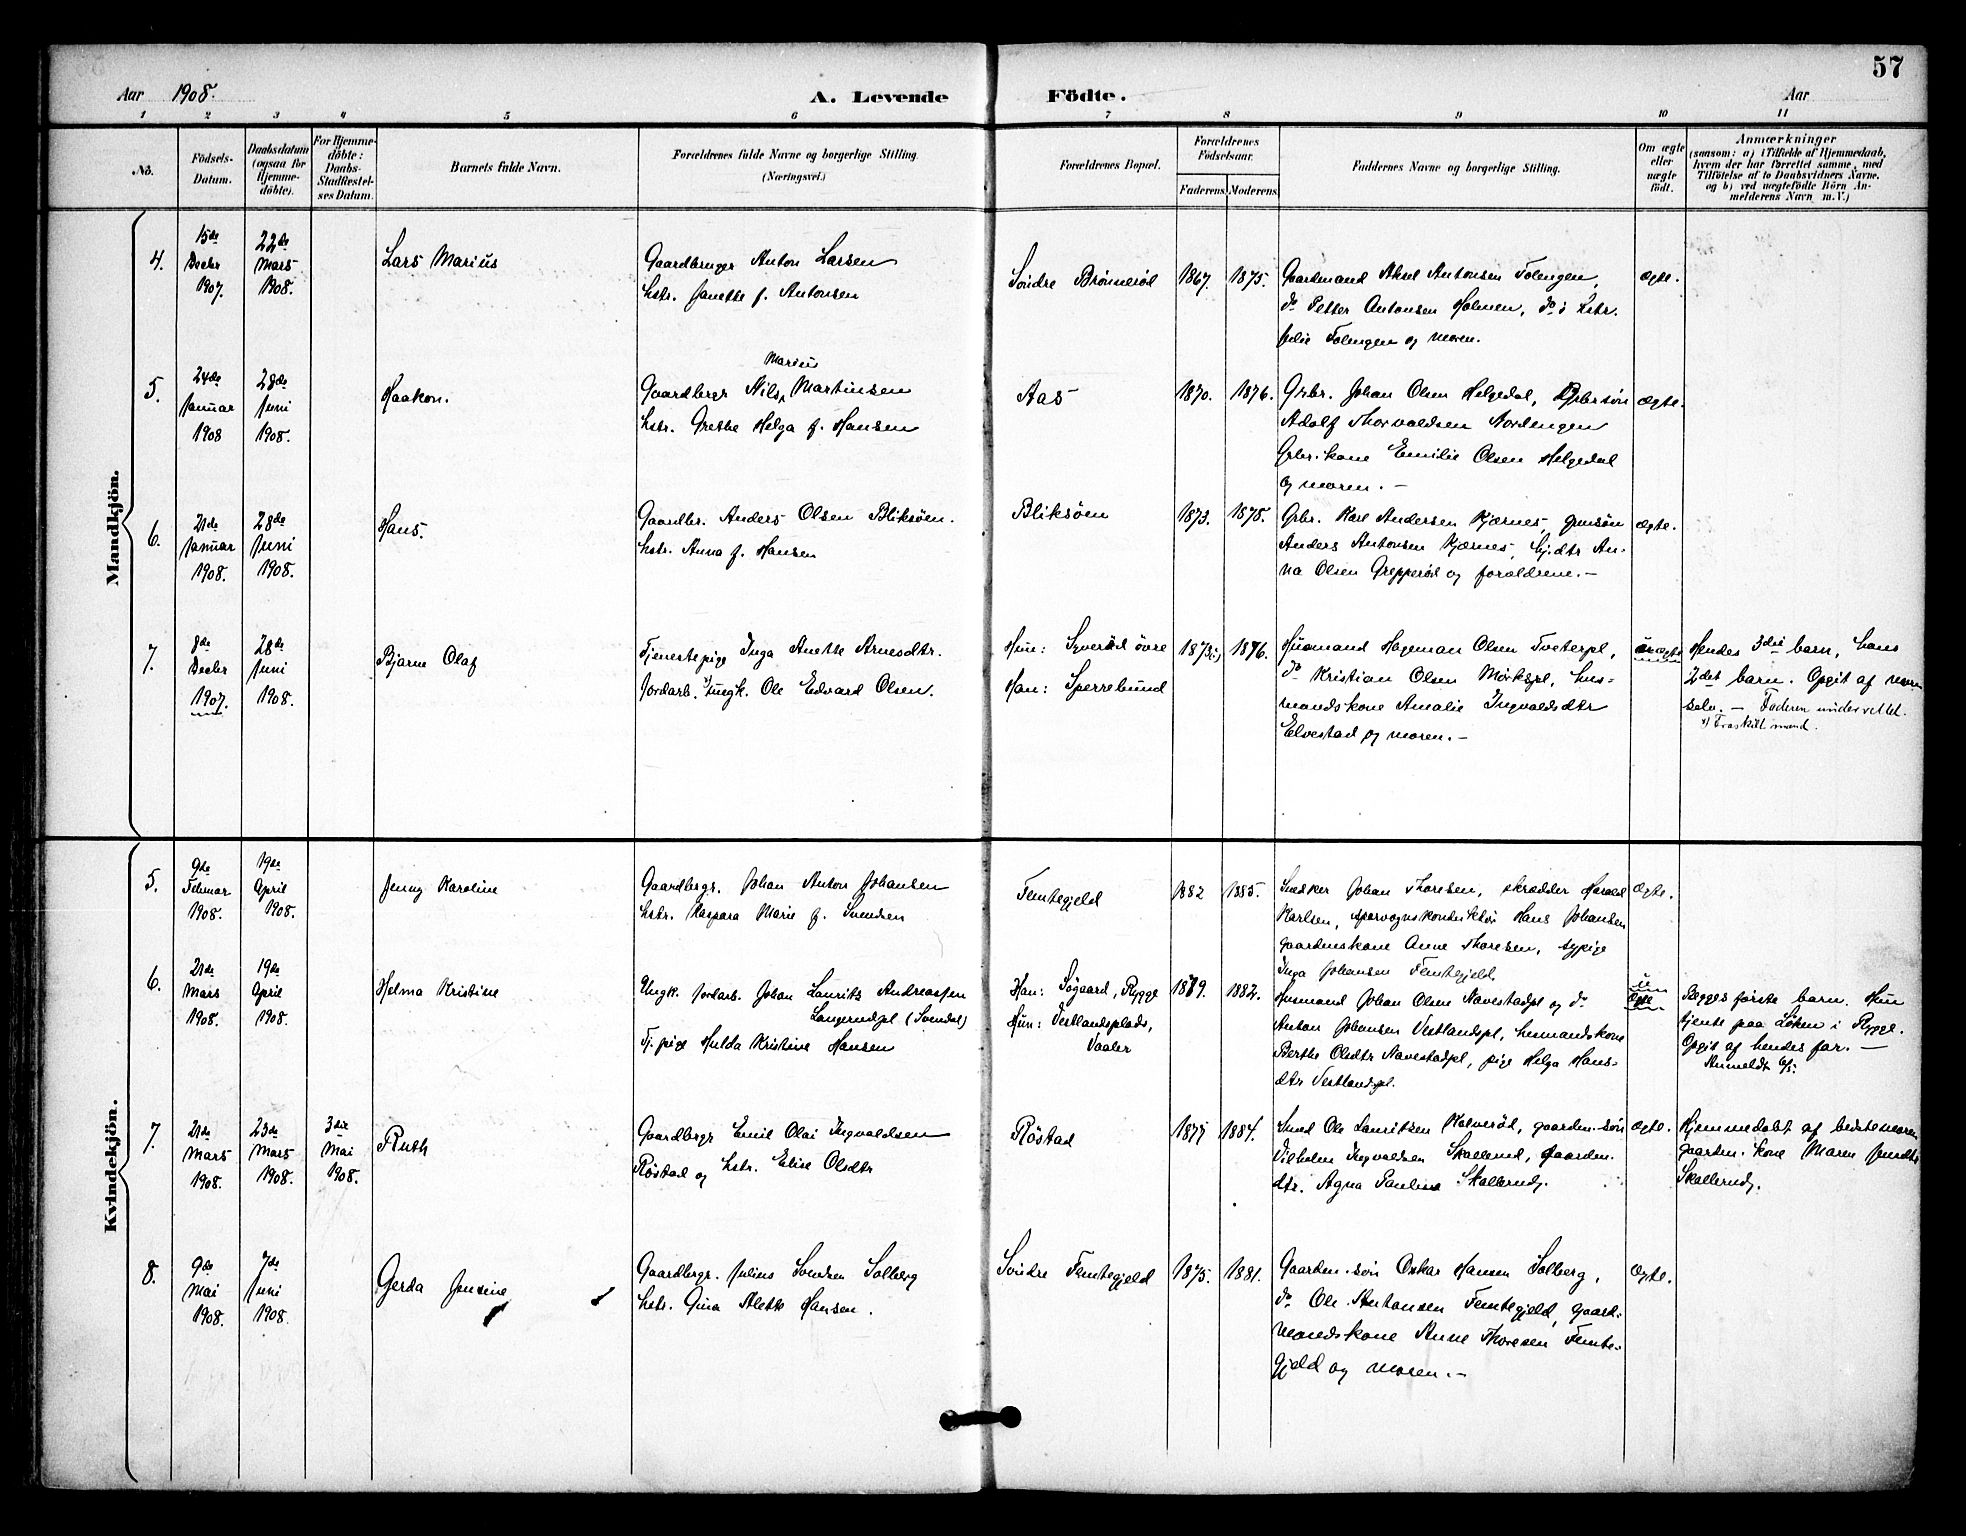 57
Aar 1908.
A. Levende Födte.
Aar
1 2 3 4 5 6 7 8 9 10 11
No.
Födsels-
Datum.
Daabsdatum
(ogsaa for
Hjemme-
döbte).
For Hjemme-
döbte:
Daabs-
Stadfæstel-
ses Datum.
Barnets fulde Navn.
Forældrenes fulde Navne og borgerlige Stilling.
(Næringsvei.)
Forældrenes Bopæl.
Forældrenes
Födselsaar.
Faderens. Moderens.
Faddernes Navne og borgerlige Stilling.
Om ægte
eller
uægte
födt.
Anmærkninger
(saasom: a) i Tilfælde af Hjemmedaab,
hvem der har forrettet samme, med
Tilföielse af to Daabsvidners Navne,
og b) ved uægtefödte Börn An-
melderens Navn m.V.)
Mandkjön.
4.
15de
Decbr
1907.
22de
Mars
1908.
Lars Marius
Gaardbruger Anton Larsen
hstr. Janette f. Antonsen
Söndre Brönneröd
1867. 1875.
Gaardmand Aksel Antonsen Folengen,
do Petter Antonsen Holmen, do's hstr.
Julie Folengen og moren.
ægte.
5.
24de
Januar
1908
28de
Juni
1908.
Haakon.
Marius
Gaardbrgr Nils Martinsen
hstr. Grethe Helga f. Hansen
Aas
1870. 1876.
Grbr. Johan Olsen Helgedal, Grbr søn
Adolf Thorvaldsen Nordengen
Grbr. kone Emilie Olsen Helgedal
og moren. –
ægte.
6.
21de
Januar
1908.
28de
Juni
1908.
Hans.
Gaardbr. Anders Olsen Bliksöen.
hstr. Anna f. Hansen
Bliksöen
1873. 1878.
Grbr. Karl Andersen Kjærnes, grmsön
Anders Antonsen Kjærnes, An-
na Olsen Grepperöd og forældrene. –
ægte.
7.
8de
Decbr
1907.
28de
Juni
1908.
Bjarne Olaf
Tjenestepige Inga Anette Arnesdtr.
Jordarb. x) Ungk. Ole Edvard Olsen.
Hun: Syveröd övre
Han: Sperrebund
1873 1876.
Husmand Hageman Olsen Tveterpl,
do Kristian Olsen Mörkspl, hus-
mandskone Amalie Ingvaldsdtr
Elvestad og moren. –
uægte
Hendes 3die barn, hans
2det barn. Opgit af moren
selv. – Faderen underrettet.
x) Fraskilt mand.
Kvindekjön.
5.
9de
Februar
1908.
19de
April
1908.
Jenny Karoline
Gaardbrgr. Johan Anton Johansen
hstr. Kaspara Marie f. Svendsen
Femtegjeld
1882 1885.
Snedker Johan Thoresen, skrædder Harald
Karlsen, sporvognskonduktör Hans Johansen
gaardmskone Anne Thoresen, sypige
Inga Johansen Femtegjeld.
ægte.
6.
21de
Mars
1908.
19de
April
1908.
Helma Kristine
Ungk. Jordarb. Johan Laurits Andreassen
(Svendal)
Tj. pige Hulda Kristine Hansen
Han: Sögaard, Rygge
Hun: Vestlandsplads,
Vaaler
1879. 1882.
Husmand Johan Olsen Navestadpl og do
Anton Johansen Vestlandspl, husmandskone
Berthe Olsdtr Navestadpl, pige Helga Hans-
dtr Vestlandspl.
u
ægte
Begges förste barn. Hun
tjente paa Löken i Rygge.
Opgit af hendes far. –
Anmeldt 6/5.
7.
21de
Mars
1908.
23de
Mars
1908.
3die
Mai
1908.
Ruth
Gaardbrgr Emil Olai Ingvaldsen
Röstad og hstr. Elise Olsdtr
Röstad
1877 1884.
Smed Ole Lauritzen Kalveröd, gaardm. sön
Vilhelm Ingvaldsen Skallerud, gaardm.
dtr. Agna Pauline Skallerud.
ægte.
Hjemmedöbt af bedstemoren
gaardm. kone Maren
Skallerud.
8.
9de
Mai
1908.
7de
Juni
1908
Gerda Jensine
Gaardbrgr. Julius Svendsen Solberg
hstr. Gina Alette Hansen.
Söndre Femtegjeld
1875. 1881.
Gaardm. sön Oskar Hansen Solberg,
do Ole Antonsen Femtegjeld, gaard-
mandskone Anne Thoresen Femte-
gjeld og moren. –
ægte.